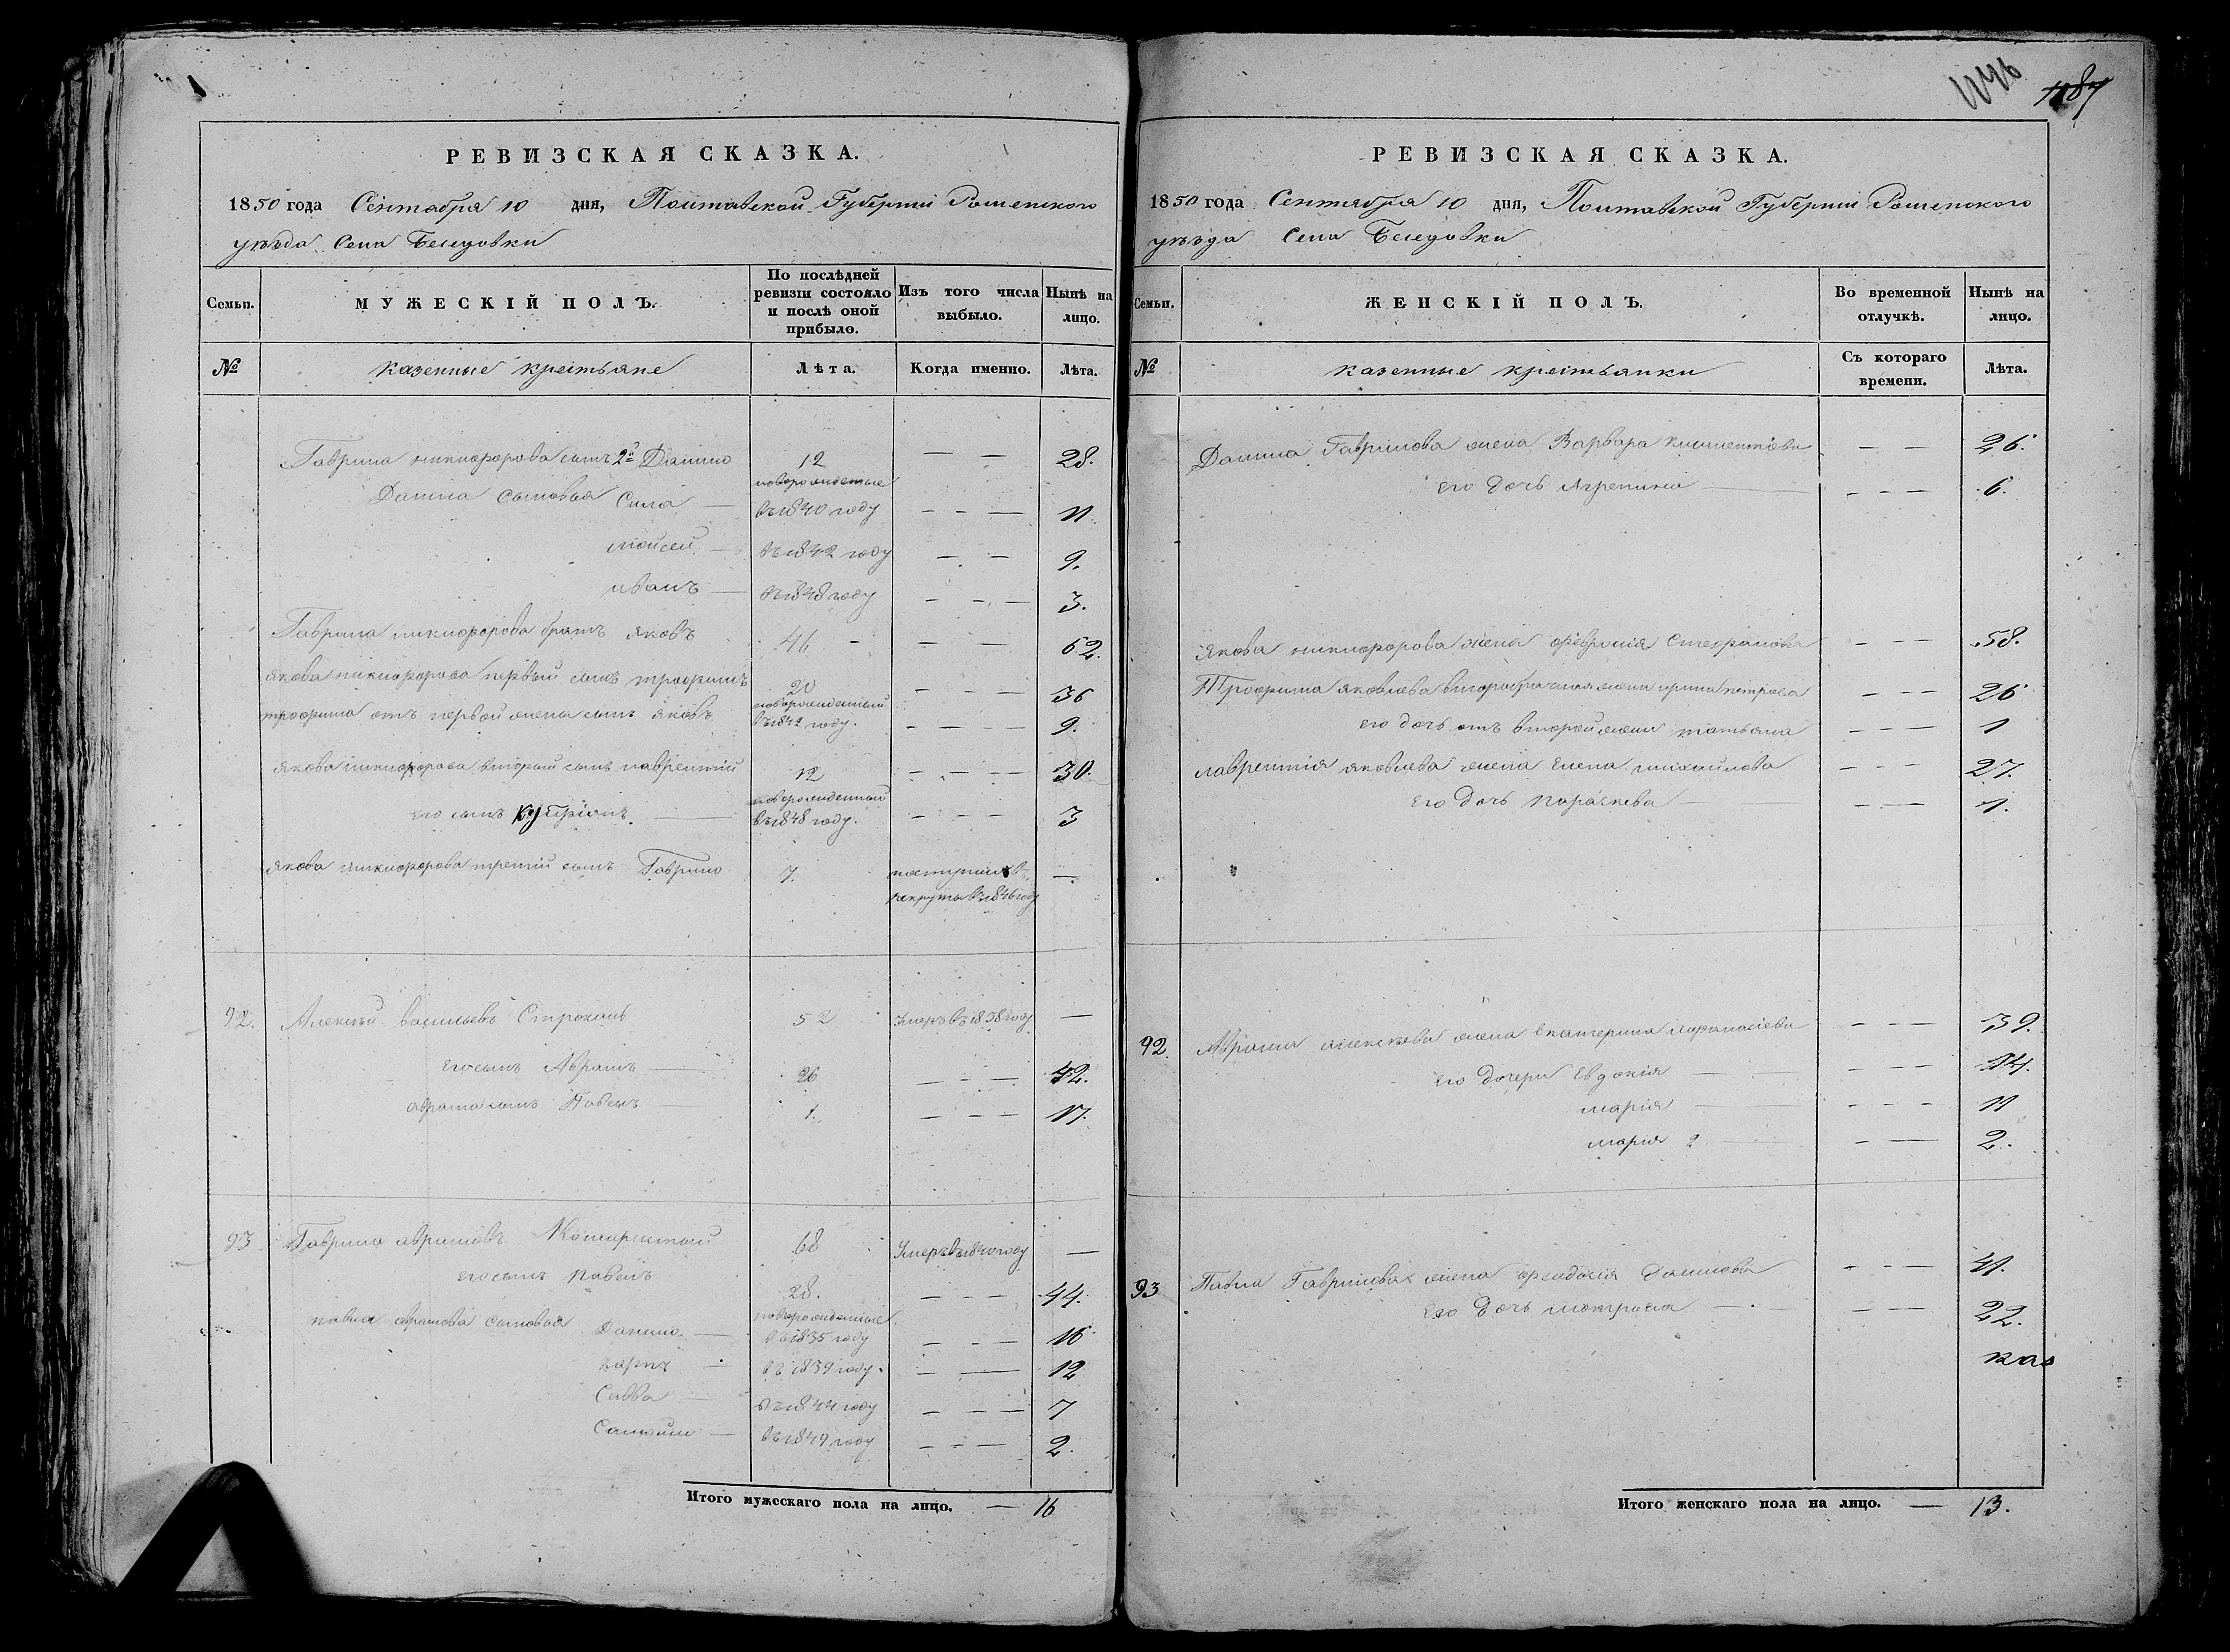 РЕВИЗСКАЯ СКАЗКА.
1850 года Сентября 10 дня, Полтавской Губернии Роменского
уезда Села Беседовки
Семьи. МУЖЕСКІЙ ПОЛЪ. По послѣдней ревизіи состояло и послѣ оной прибыло. Изъ того числа выбыло. Нынѣ на лицо.
№ казенные крестьяне Лѣта. Когда именно. Лѣта.
Гаврила никифорова сынъ 2й Данило 12 — — 28.
новорожденные
Данила сыновья Сила — въ 1840 году — — — 11
Мойсей — въ 1842 году — — 9.
иванъ — въ 1848 году — — — 3.
Гаврила никифорова братъ яковъ 46 — — 62.
якова никифорова первый сынъ трофимъ 20 — — — 36
новорожденный
трофима отъ первой жены сынъ яковъ въ 1842 году. — — — 9.
якова никифорова вторый сынъ лаврентий 12 — — — 30.
новорожденный
его сынъ — въ 1848 году. — — — 3
якова никифорова третий сынъ Гаврило 7. поступилъ в —
рекруты въ 1846 году
92. Алексей васильевъ 52 умеръ въ 1838 году —
его сынъ Аврамъ — 26 — — — 42.
аврама сынъ Павелъ — 1. — — — 17.
93 Гаврило аврамовъ 68 Умеръ въ 1840 году —
его сынъ павелъ 28. — — — 44.
новорожденные
павла сыновья Данило — въ 1835 году — — — 16
карпъ — въ 1839 году. — — 12
Савва — въ 1844 году — — — 7
въ 1849 году — — — 2.
Итого мужескаго пола на лицо. — 16
1187
РЕВИЗСКАЯ СКАЗКА.
1850 года Сентября 10 дня, Полтавской Губернии Роменского
уезда Села Беседовки
Семьи. ЖЕНСКІЙ ПОЛЪ. Во временной отлучкѣ. Нынѣ на лицо.
№ казенные крестьянки Съ котораго времени. Лѣта.
Данила Гаврилова жена Варвара — — 26.
его дочь Агрепина — — — — 6.
якова никифорова жена феврония Стефанова — — — 58.
Трофима яковлева второбрачная жена ирина петрова — — — 26
его дочь отъ второй жены татьяна — — — 1
лаврентия яковлева жена Елена михайлова — — — 27.
его дочь параскева — — — 1.
92. Аврама алексеева жена екатерина афанасиева — — — 39.
его дочери Евдокия — — — — 14.
мария — — — — 11
мария 2 — — — 2.
93 Павла Гаврилова жена феодосия Данилова — — — 41.
Его дочь мотрона — — — 22.
Итого женскаго пола на лицо. — 13.